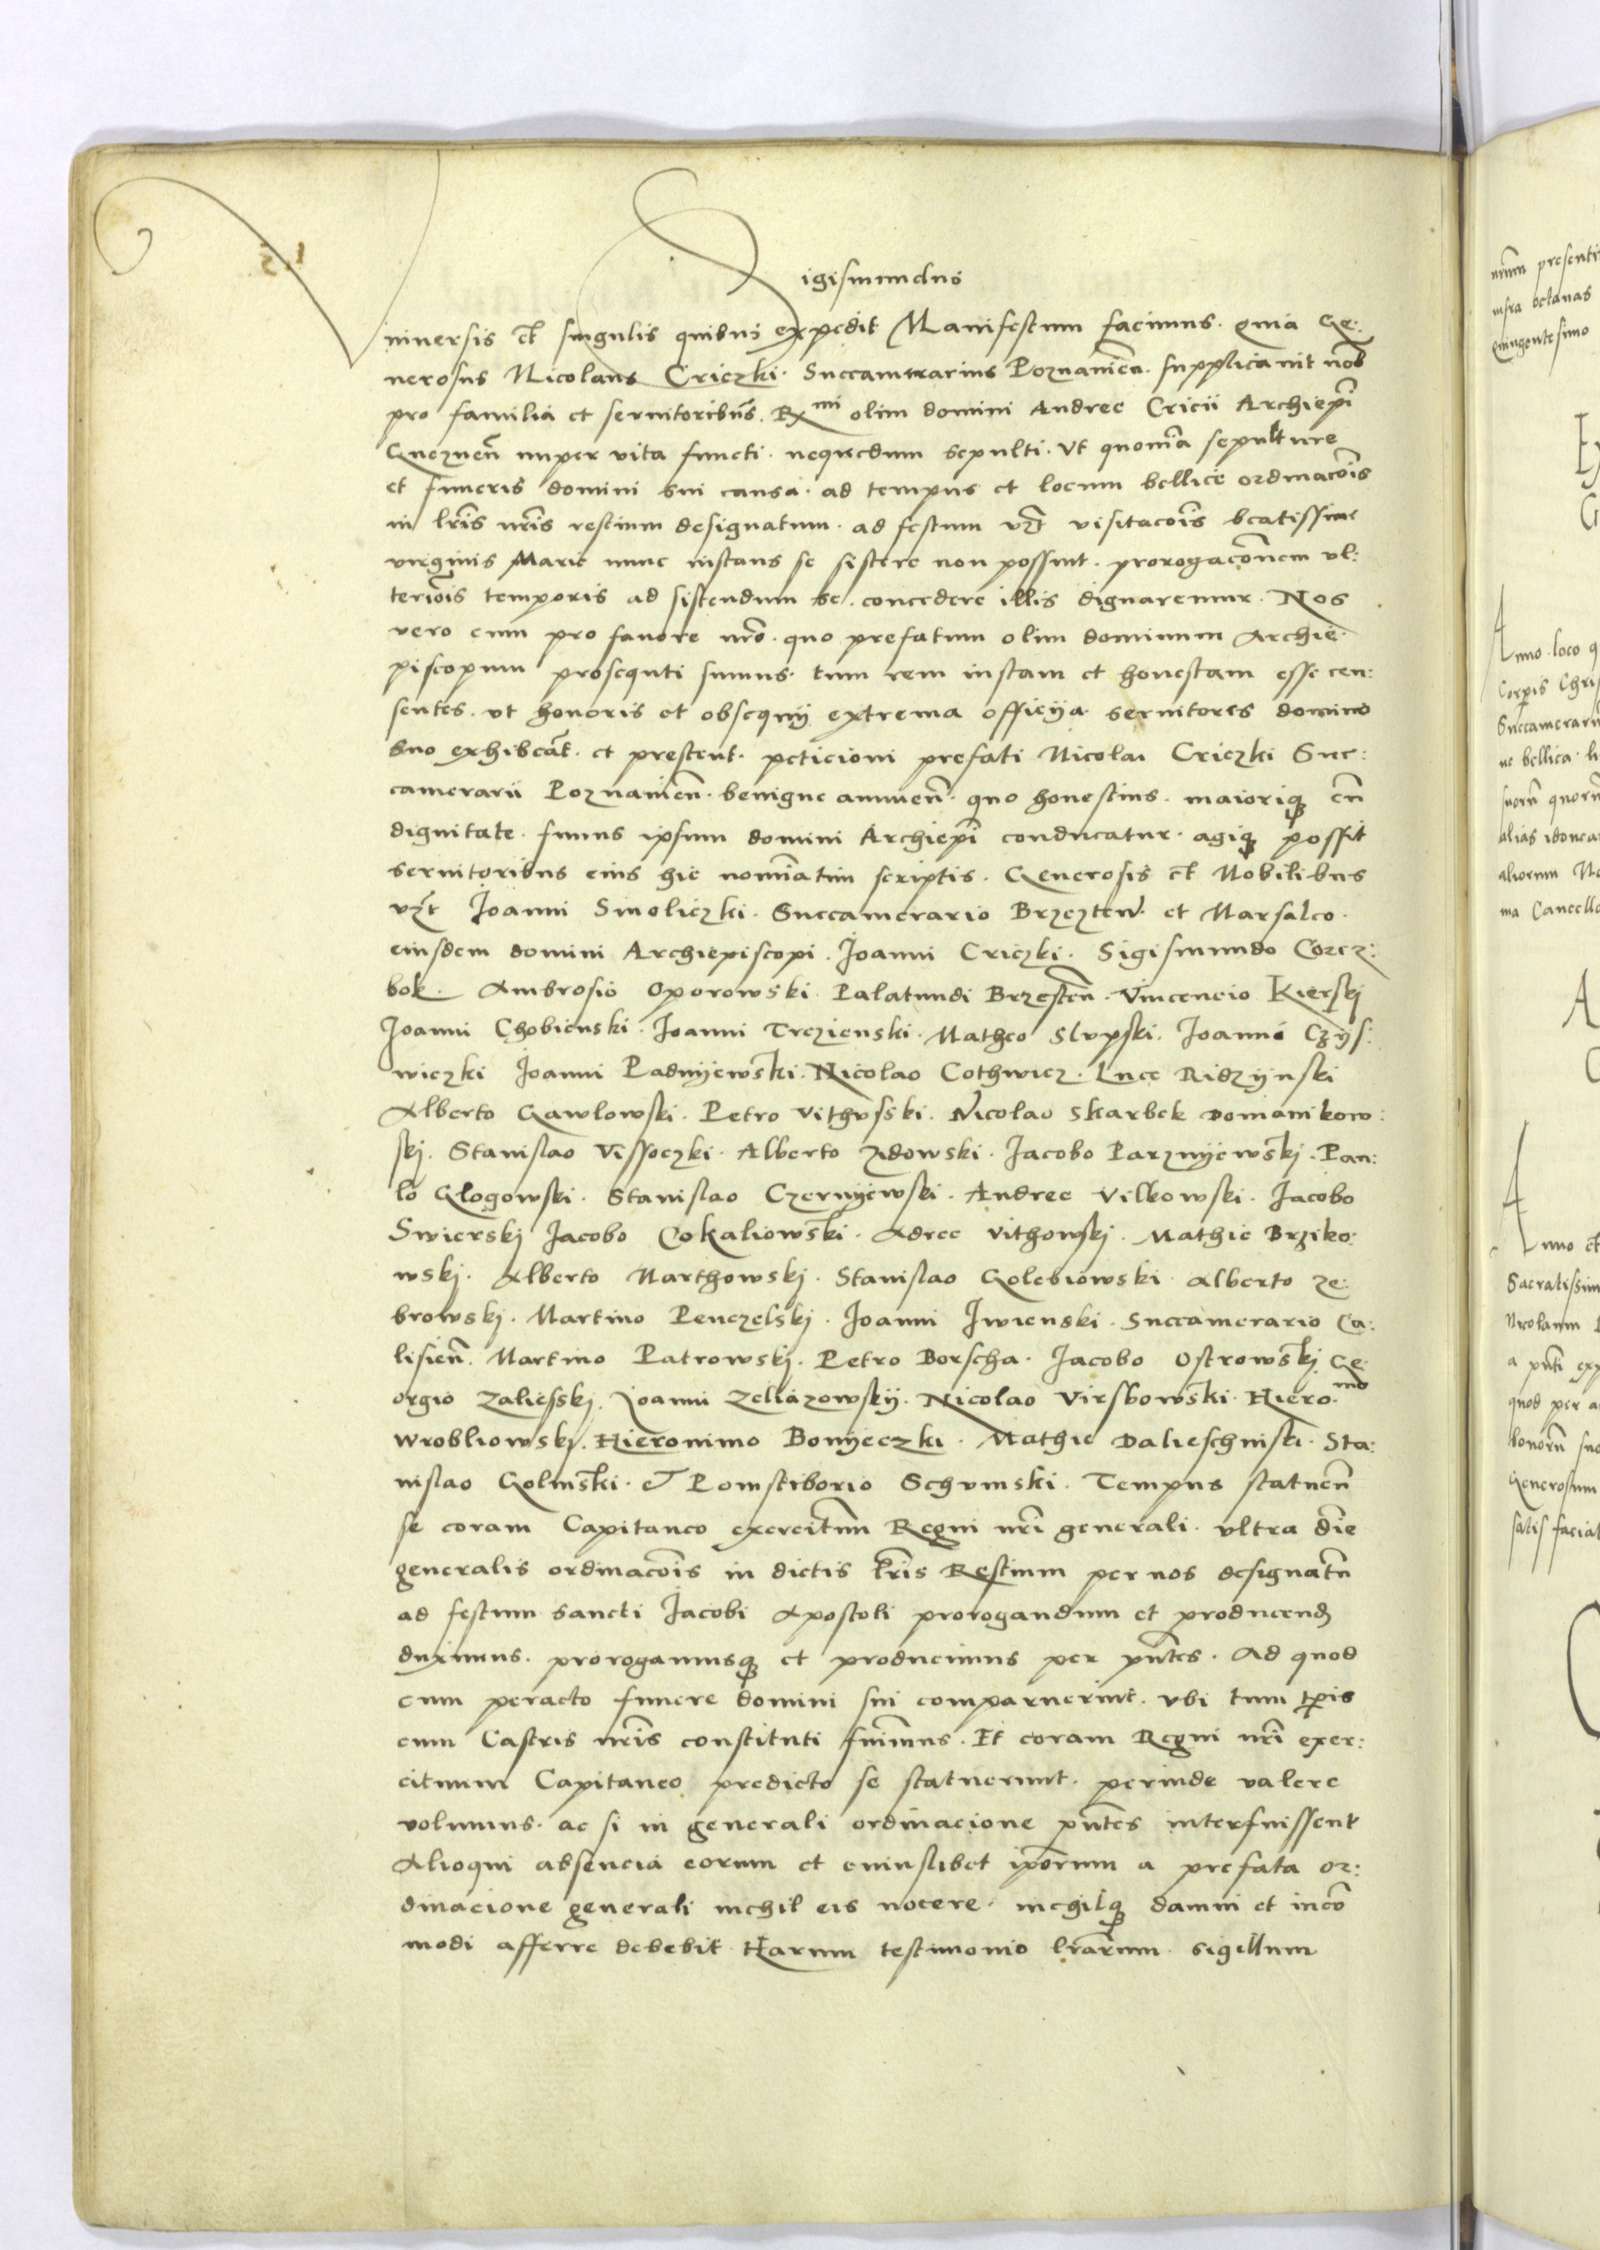 Sigismundus
Universis et singulis quibus expedit Manifestum facimus. quia Ge:
nerosus Nicolaus Criczki. Succamerarius Poznanien. supplicavit nob
pro familia et servitoribus. Rmi olim domini Andree Cricii Archiepi
Gneznen nuper vita functi. nequedum sepulti. Ut quonia sepulture
et funeris domini sui causa. ad tempus et locum bellice ordinacois
in lris nris restium designatum. ad festum vzt visitacois beatissime
virginis Marie nunc instans se sistere non possint. prorogaconem ul:
teriois temporis ad sistendum se. concedere illis dignaremur. Nos
vero cum pro favore nro. quo prefatum olim dominum Archie:
piscopum prosequti sumus. tum rem iustam et honestam esse cen:
sentes. ut honoris et obsequij extrema officija servitores domino
suo exhibeat. et prestent. peticioni prefati Nicolai Criczki Suc:
camerarii Poznanien. benigne annuen. quo honestius. maioriq cu
dignitate. funus ipsum domini Archiepi conducatur. agiq possit
servitoribus eius hic nomiatim scriptis. Generosis et Nobilibus
vzt Joanni Smoliczki. Succamerario Brzezten. et Marsalco.
eiusdem domini Archiepiscopi. Joanni Criczki. Sigismundo Corcz:
bok. Ambrosio Oporowski Palatinidi Brzesten. Vincencio Kierskj
Joanni Chobienski. Joanni Trczienski. Matheo Slupski. Joanni Czijs:
wiczki Joanni Padnijewski. Nicolao Cothwicz. Luce Ridzijnski
Alberto Gawlowski. Petro Vithvsski. Nicolao Skarbek Domanikow:
skj. Stanislao Vissoczki. Alberto Zidowski. Jacobo Parznijewskj. Pau:
lo Glogowski. Stanislao Czernijewski. Andree Vilkowski. Jacobo
Swierskj Jacobo Cokaliowski. Adree Vithowskj. Mathie Brziko:
wskj. Alberto Marthowskj. Stanislao Golebiowski. Alberto Ze:
browskj. Martino Penczelskj. Joanni Jwienski. Succamerario Ca:
lisien. Martino Patrowskj. Petro Borscha. Jacobo Ostrowskj Ge:
orgio Zaliesskj. Joanni Zeliazowskij. Nicolao Virsbowski. Hiero.mo
Wrobliowskj. Hieronimo Bonijeczki. Mathie Dalieschinski. Sta:
nislao Golinski. et Pomstiborio Schvmski. Tempus statuen
se coram Capitaneo exercituu Regni nri generali. ultra die
generalis ordinacois in dictis lris Restium per nos designatu
ad festum sancti Jacobi Apostoli prorogandum et producend
duximus. prorogamusq et producimus per pntes. Ad quod
cum peracto funere domini sui comparuerint. ubi tum tpis
cum Castris nris constituti fuimus. Et coram Regni nri exer:
cituum Capitaneo predicto se statuerunt. perinde valere
volumus. ac si in generali ordinacione pntes interfuissent
Alioqui absencia eorum et cuiuslibet ipsorum a prefata or:
dinacione generali nichil eis nocere. nichilq damni et inco
modi afferre debebit Harum testimonio lrarum. sigillum